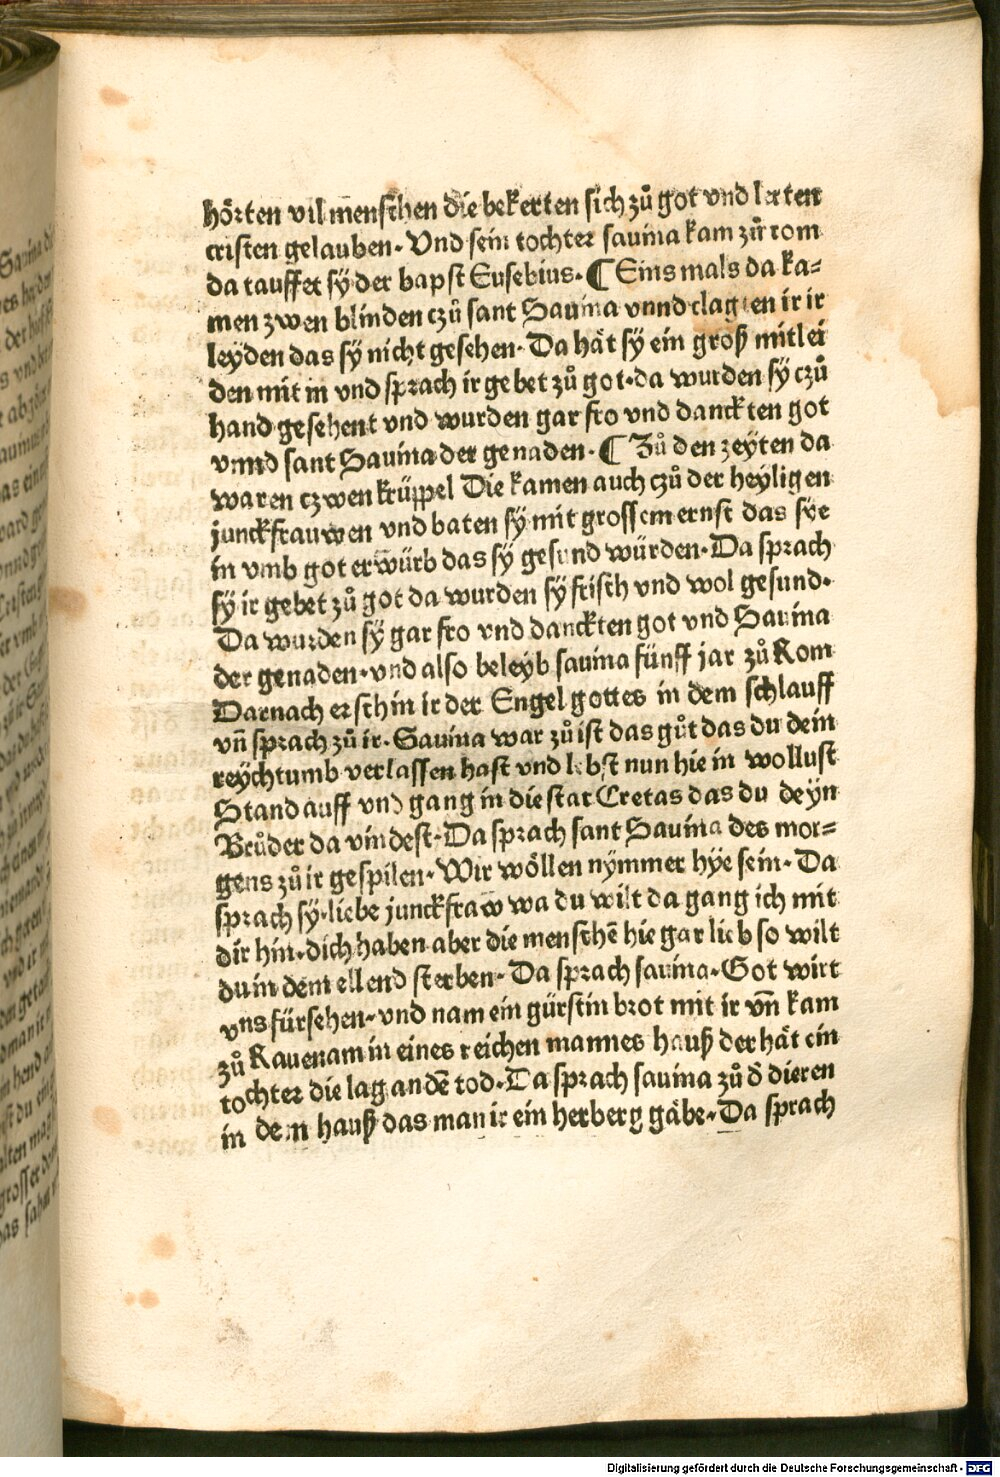 hörten vil mēnschen die bekerten sich zů got vnd lerten
cristen gelauben. Vnd sein tochter sauina kam zů rom
da tauffet sÿ der bapst Eusebius. ¶ Eins mals da ka=
men zwen blinden czů sant Sauina vnnd clagten ir ir
leyden das sÿ nicht gesehen. Da hät sÿ ein groß mitlei
den mit in vnd sprach ir gebet zů got. da wurden sÿ czů
hand gesehent vnd wurden gar fro vnd danckten got
vnnd sant Sauina der genaden. ¶ Zů den zeyten da
waren czwen krüppel Die kamen auch czů der heyligen
junckfrauwen vnd baten sÿ mit grossem ernst das sÿe
in vmb got erwürb das sÿ gesund würden. Da sprach
sÿ ir gebet zů got da wurden sÿ frisch vnd wol gesund.
Da wurden sÿ gar fro vnd danckten got vnd Sauina
der genaden. vnd also beleyb sauina fünff jar zů Rom
Darnach erschin ir der Engel gottes in dem schlauff
vn̄ sprach zů ir. Sauina war zů ist das gůt das du dein
reychtumb verlassen hast vnd lebst nun hie in wollust
Stand auff vnd gang in die stat Cretas das du deyn
Brůder da vindest. Da sprach sant Sauina des mor=
gens zů ir gespilen. Wir wöllen nÿmmer hÿe sein. Da
sprach sÿ. liebe junckfraw wa du wilt da gang ich mit
dir hin. dich haben aber die menschē hie gar lieb so wilt
du in dem ellend sterben. Da sprach sauina. Got wirt
vns fürsehen. vnd nam ein gürstin brot mit ir vn̄ kam
zů Rauenam in eines reichen mannes hauß der hät ein
tochter die lag an dē tod. Da sprach sauina zů d̄ dieren
in dem hauß das man ir ein herberg gäbe. Da sprach
Digitalisierung gefördert durch die Deutsche Forschungsgemeinschaft - DFG